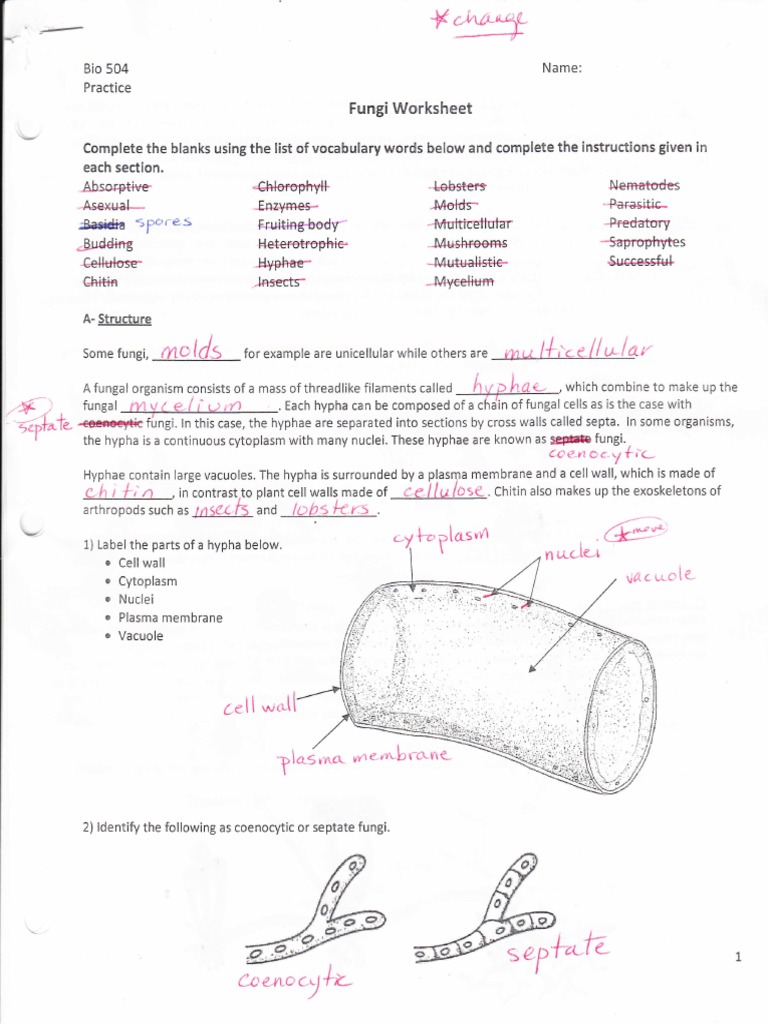 *change
Bio 504 Name:
Practice
Fungi Worksheet
Complete the blanks using the list of vocabulary words below and complete the instructions given in
each section.
Absorptive Chlorophyll Lobsters Nematodes
Asexual Enzymes Molds Parasitic
Basidia spores Fruiting body Multicellular Predatory
Budding Heterotrophic Mushrooms Saprophytes
Cellulose Hyphae Mutualistic Successful
Chitin Insects Mycelium
A- Structure
Some fungi, molds for example are unicellular while others are multicellular
A fungal organism consists of a mass of threadlike filaments called hyphae, which combine to make up the
fungal mycelium. Each hypha can be composed of a chain of fungal cells as is the case with
* septate coenocytic fungi. In this case, the hyphae are separated into sections by cross walls called septa. In some organisms,
the hypha is a continuous cytoplasm with many nuclei. These hyphae are known as septate fungi.
coenocytic
Hyphae contain large vacuoles. The hypha is surrounded by a plasma membrane and a cell wall, which is made of
chitin, in contrast to plant cell walls made of cellulose. Chitin also makes up the exoskeletons of
arthropods such as insects and lobsters.
1) Label the parts of a hypha below.
• Cell wall
• Cytoplasm
• Nuclei
• Plasma membrane
• Vacuole
cytoplasm
nuclei *move
vacuole
cell wall
plasma membrane
2) Identify the following as coenocytic or septate fungi.
coenocytic
septate
1